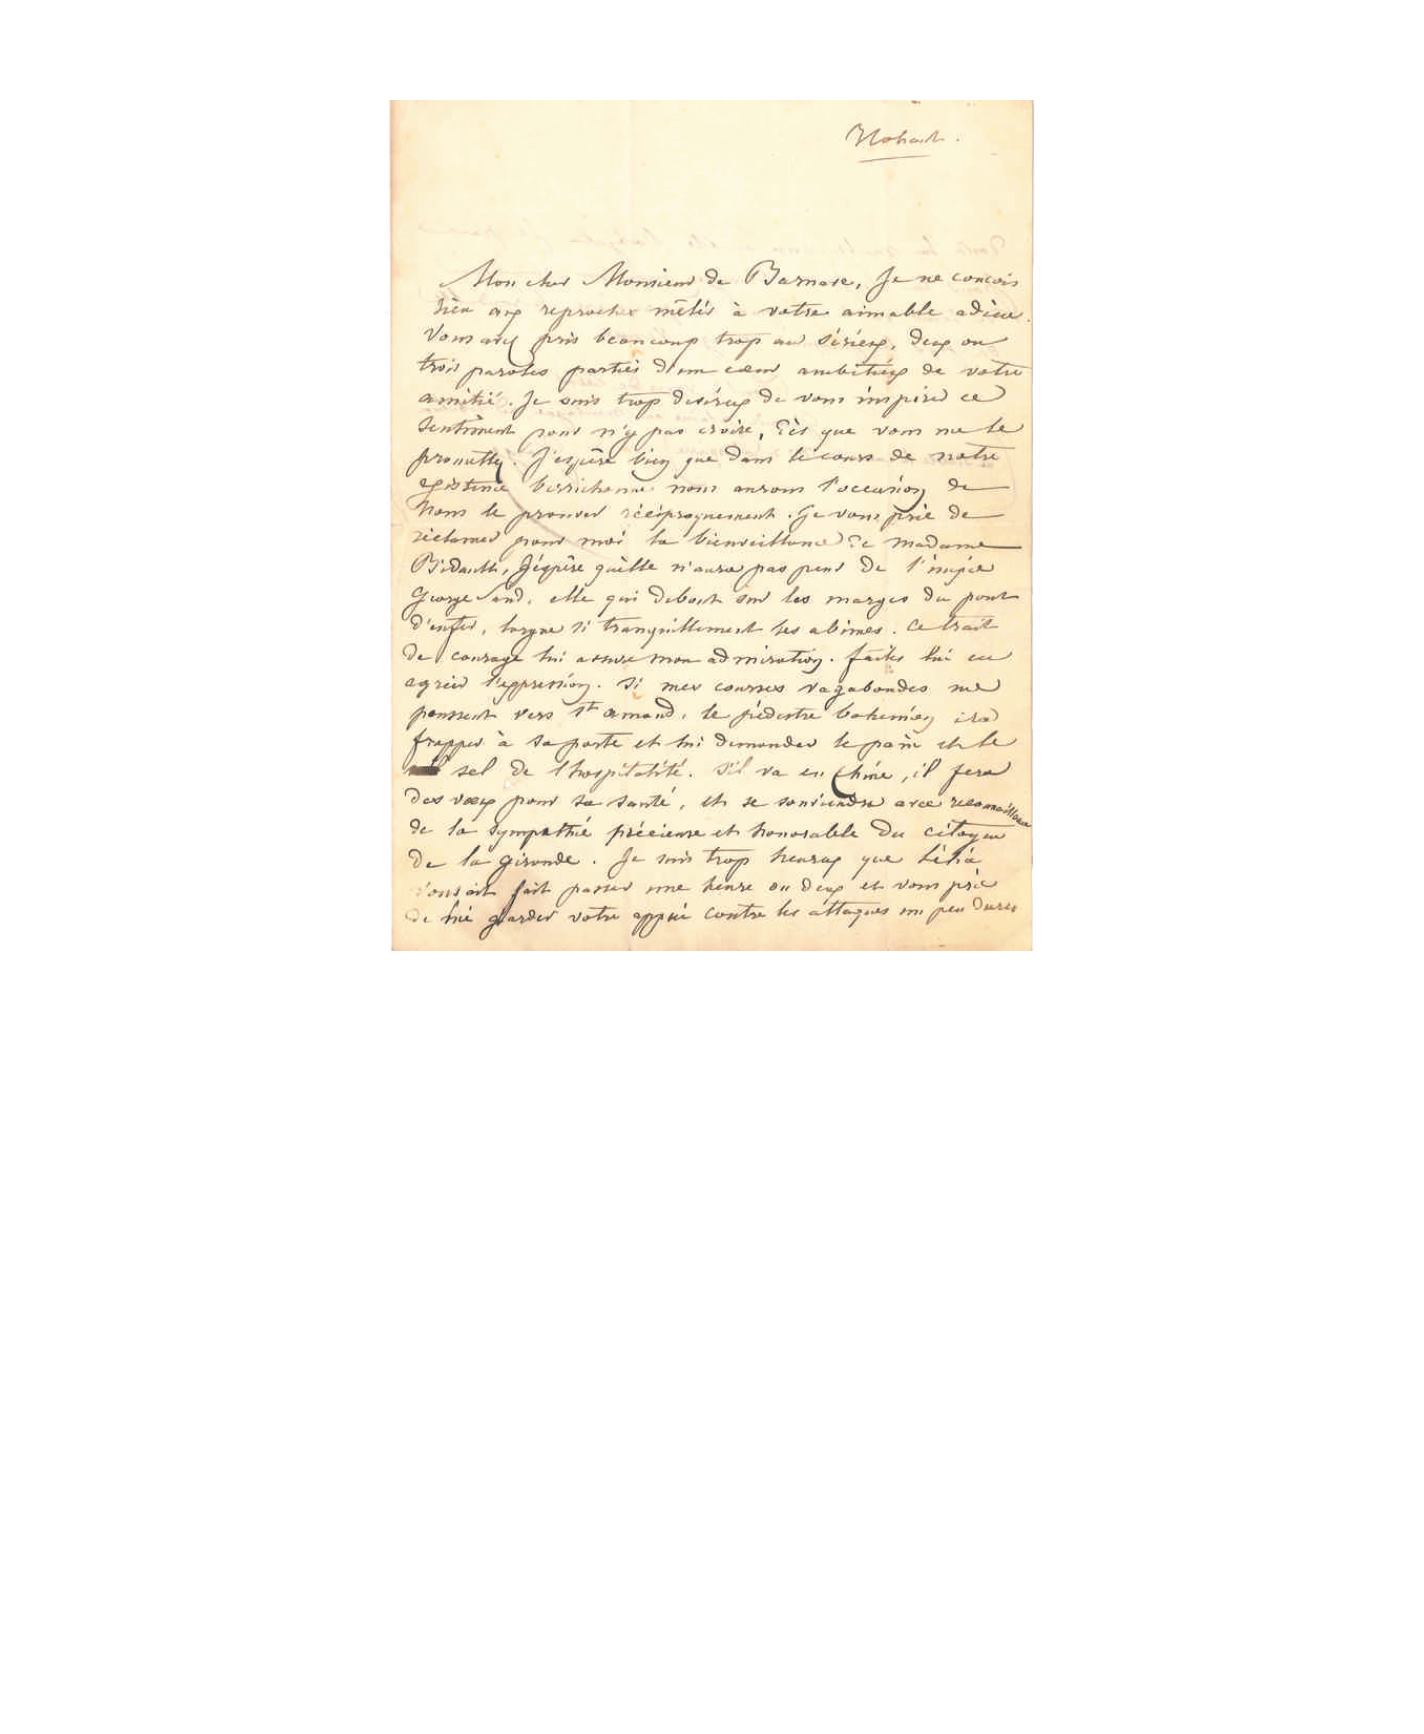 Nohant.
Mon cher Monsieur de Barnave, Je ne concois
rien aux reproches mêlés à votre aimable adieu.
Vous avez pris beaucoup trop au sérieux, deux ou
trois paroles parties d'un cœur ambitieux de votre
amitié. Je suis trop desireux de vous inspirer ce
sentiment pour n'y pas croire, dès que vous me le
promettez. J'espère bien que dans le cours de notre
existence berrichonne nous aurons l'occasion de
nous le prouver réciproquement. Je vous prie de
réclamer pour moi la bienveillance de madame
Bidault, J'espère qu'elle n'aura pas peur de l'impie
George Sand, elle qui debout sur les marges du pont
d'enfer, lorgne si tranquillement les abimes. Ce trait
de courage lui assure mon admiration. faites lui en
agréer l'expression. Si mes courses vagabondes me
poussent vers St amand, le piédestre bohemien ira
frapper à sa porte et lui demander le pain et le
sel de l'hospitalité. S'il va en Chine, il fera
des vœux pour sa santé, et se souviendra avec reconnaissance
de la sympathie précieuse et honorable du citoyen
de la gironde. Je suis trop heureux que Lélia
vous ait fait passer une heure ou deux et vous prie
de lui garder votre appui contre les attaques un peu dures